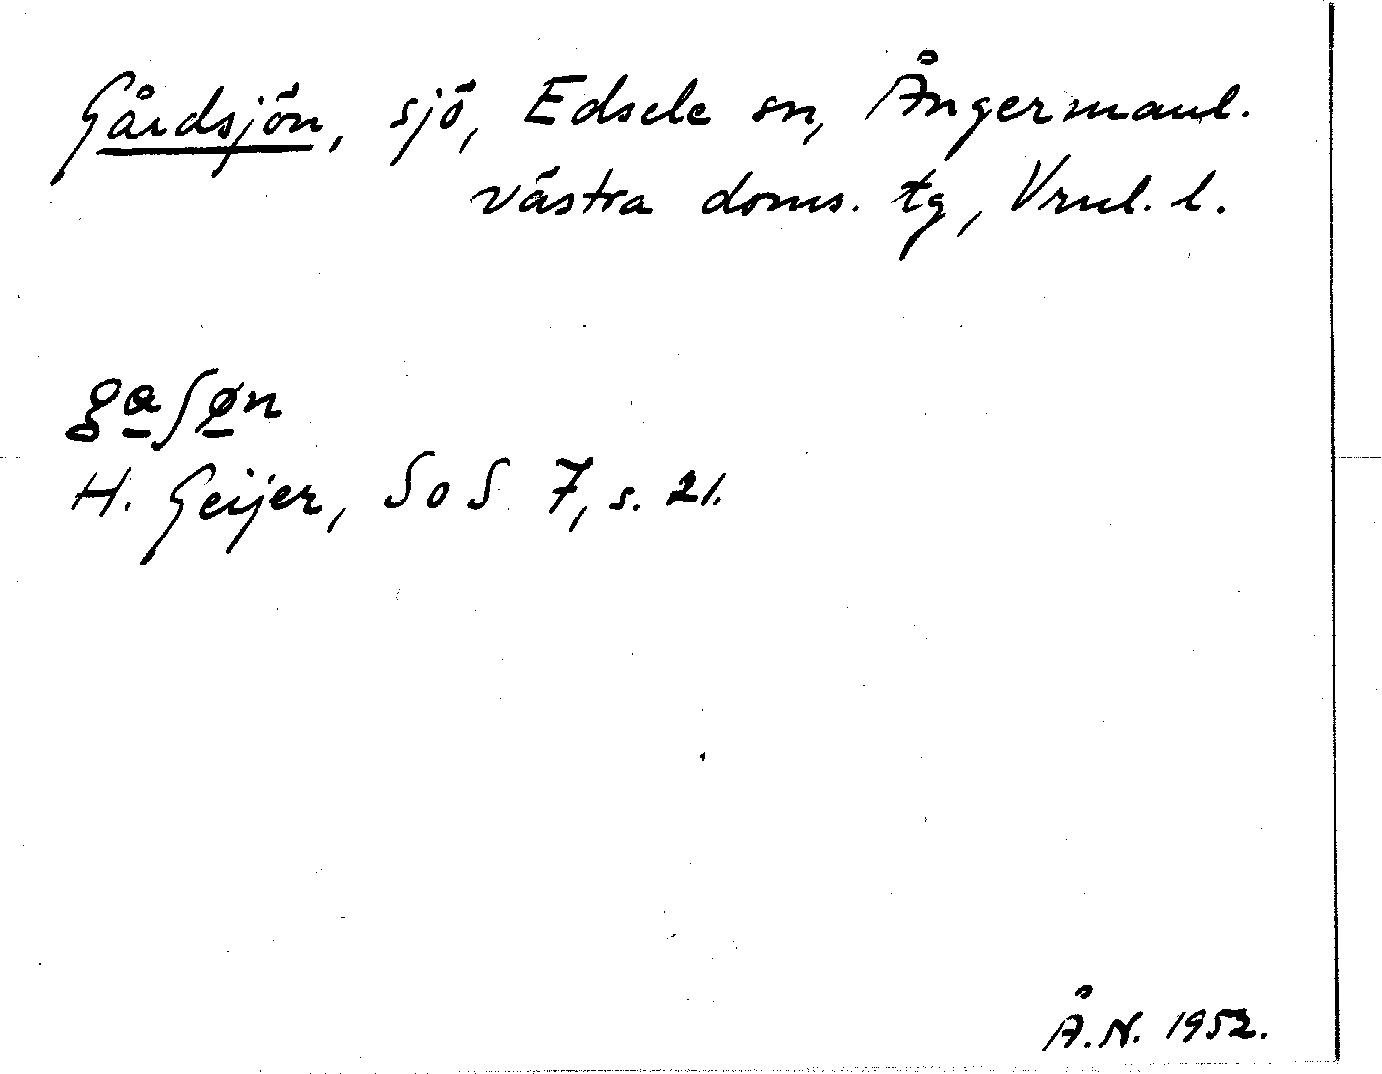 Gårdsjön, sjö, Edsele sn, Ångermanl.
västra doms. tg, Vrnl. l.
gaʃøn
H. Geijer, SoS 7, s. 21.
Å.N. 1952.